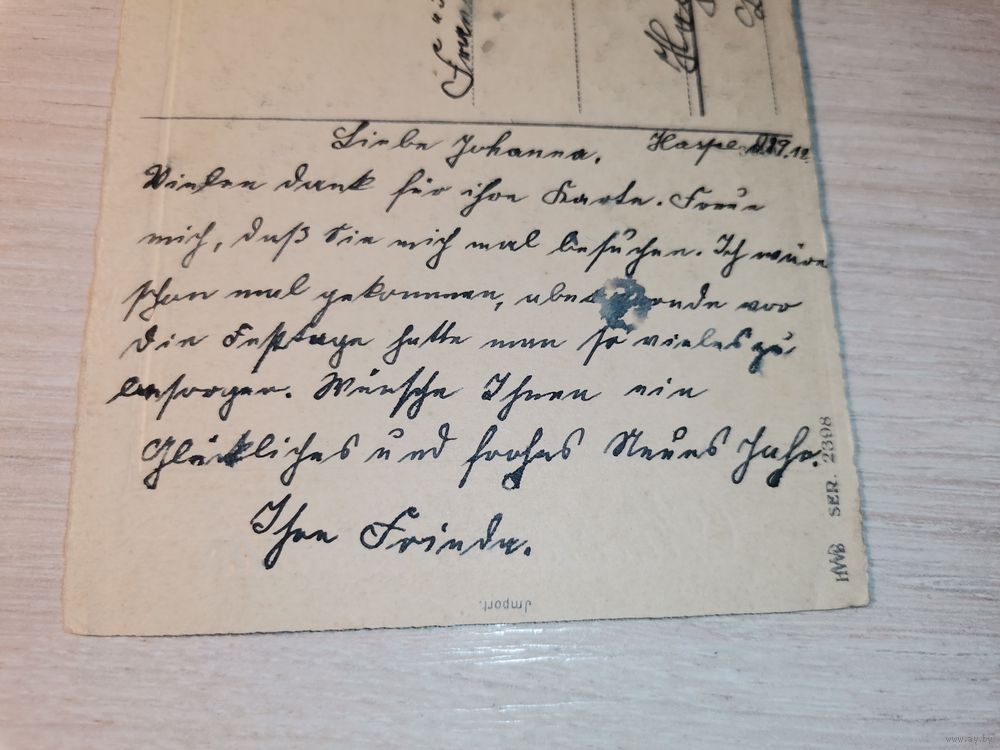 Liebe Johanna. Haspe d. 29.12.
Vielen dank für ihre Karte. Freue
mich, daß Sie mich mal besuchen. Ich wäre
schon mal gekommen, aber grade vor
die Festtage hatte man so vieles zu
besorgen. Wünsche Ihnen ein
Glückliches und frohes Neues Jahr.
Ihre Frieda.
HWB SER. 2398
Import.
www.ay.by